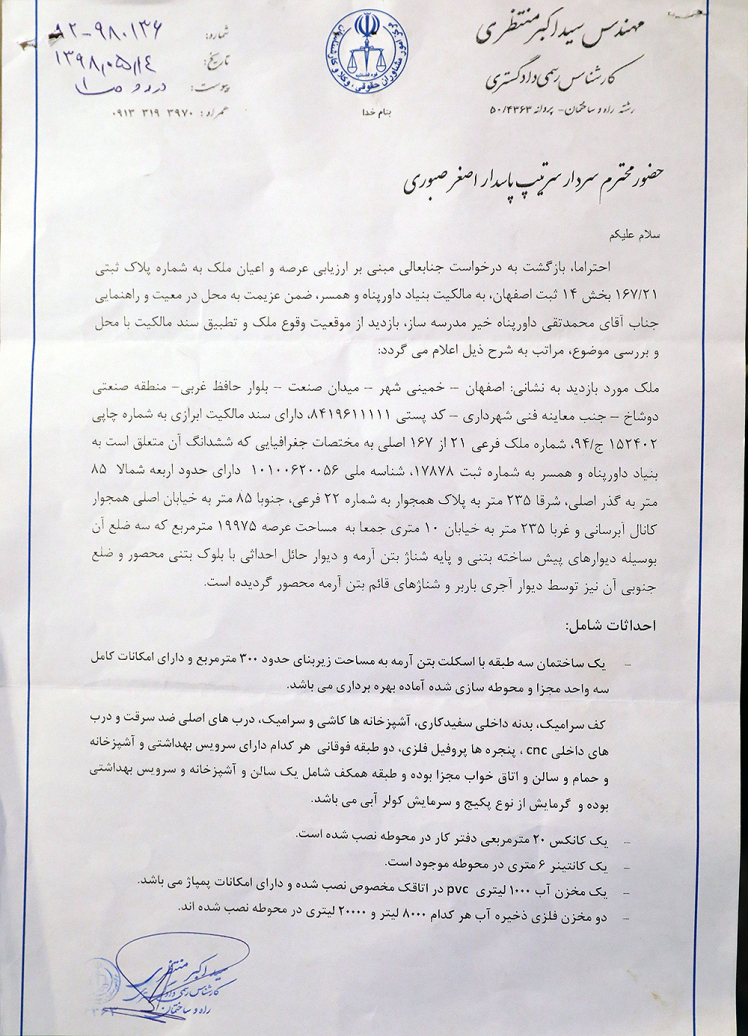 مهندس سید اکبر منتظری
کارشناس رسمی دادگستری
رشته راه و ساختمان- پروانه ۵۰/۴۳۶۳
بنام خدا
شماره: ۹۸۰۱۳۶-۸۲
تاریخ: ۱۳۹۸,۰۵,۱۴
پیوست:
همراه: ۳۹۷۰ ۳۱۹ ۰۹۱۳
حضور محترم سردار سرتیپ پاسدار اصغر صبوری
سلام علیکم
احتراما، بازگشت به درخواست جنابعالی مبنی بر ارزیابی عرصه و اعیان ملک به شماره پلاک ثبتی
۱۶۷/۲۱ بخش ۱۴ ثبت اصفهان، به مالکیت بنیاد داورپناه و همسر، ضمن عزیمت به محل در معیت و راهنمایی
جناب آقای محمدتقی داورپناه خیر مدرسه ساز، بازدید از موقعیت وقوع ملک و تطبیق سند مالکیت با محل
و بررسی موضوع، مراتب به شرح ذیل اعلام می گردد:
ملک مورد بازدید به نشانی: اصفهان – خمینی شهر – میدان صنعت – بلوار حافظ غربی– منطقه صنعتی
دوشاخ – جنب معاینه فنی شهرداری – کد پستی ۸۴۱۹۶۱۱۱۱۱، دارای سند مالکیت ابرازی به شماره چاپی
۱۵۲۴۰۲ ج/۹۴، شماره ملک فرعی ۲۱ از ۱۶۷ اصلی به مختصات جغرافیایی که ششدانگ آن متعلق است به
بنیاد داورپناه و همسر به شماره ثبت ۱۷۸۷۸، شناسه ملی ۱۰۱۰۰۶۲۰۰۵۶ دارای حدود اربعه شمالا ۸۵
متر به گذر اصلی، شرقا ۲۳۵ متر به پلاک همجوار به شماره ۲۲ فرعی، جنوبا ۸۵ متر به خیابان اصلی همجوار
کانال آبرسانی و غربا ۲۳۵ متر به خیابان ۱۰ متری جمعا به مساحت عرصه ۱۹۹۷۵ مترمربع که سه ضلع آن
بوسیله دیوارهای پیش ساخته بتنی و پایه شناژ بتن آرمه و دیوار حائل احداثی با بلوک بتنی محصور و ضلع
جنوبی آن نیز توسط دیوار آجری باربر و شناژهای قائم بتن آرمه محصور گردیده است.
احداثات شامل:
– یک ساختمان سه طبقه با اسکلت بتن آرمه به مساحت زیربنای حدود ۳۰۰ مترمربع و دارای امکانات کامل
سه واحد مجزا و محوطه سازی شده آماده بهره برداری می باشد.
کف سرامیک، بدنه داخلی سفیدکاری، آشپزخانه ها کاشی و سرامیک، درب های اصلی ضد سرقت و درب
های داخلی cnc ، پنجره ها پروفیل فلزی، دو طبقه فوقانی هر کدام دارای سرویس بهداشتی و آشپزخانه
و حمام و سالن و اتاق خواب مجزا بوده و طبقه همکف شامل یک سالن و آشپزخانه و سرویس بهداشتی
بوده و گرمایش از نوع پکیج و سرمایش کولر آبی می باشد.
– یک کانکس ۲۰ مترمربعی دفتر کار در محوطه نصب شده است.
– یک کانتینر ۶ متری در محوطه موجود است.
– یک مخزن آب ۱۰۰۰ لیتری pvc در اتاقک مخصوص نصب شده و دارای امکانات پمپاژ می باشد.
– دو مخزن فلزی ذخیره آب هر کدام ۸۰۰۰ لیتر و ۲۰۰۰۰ لیتری در محوطه نصب شده اند.
سید اکبر منتظری
کارشناس رسمی دادگستری
راه و ساختمان